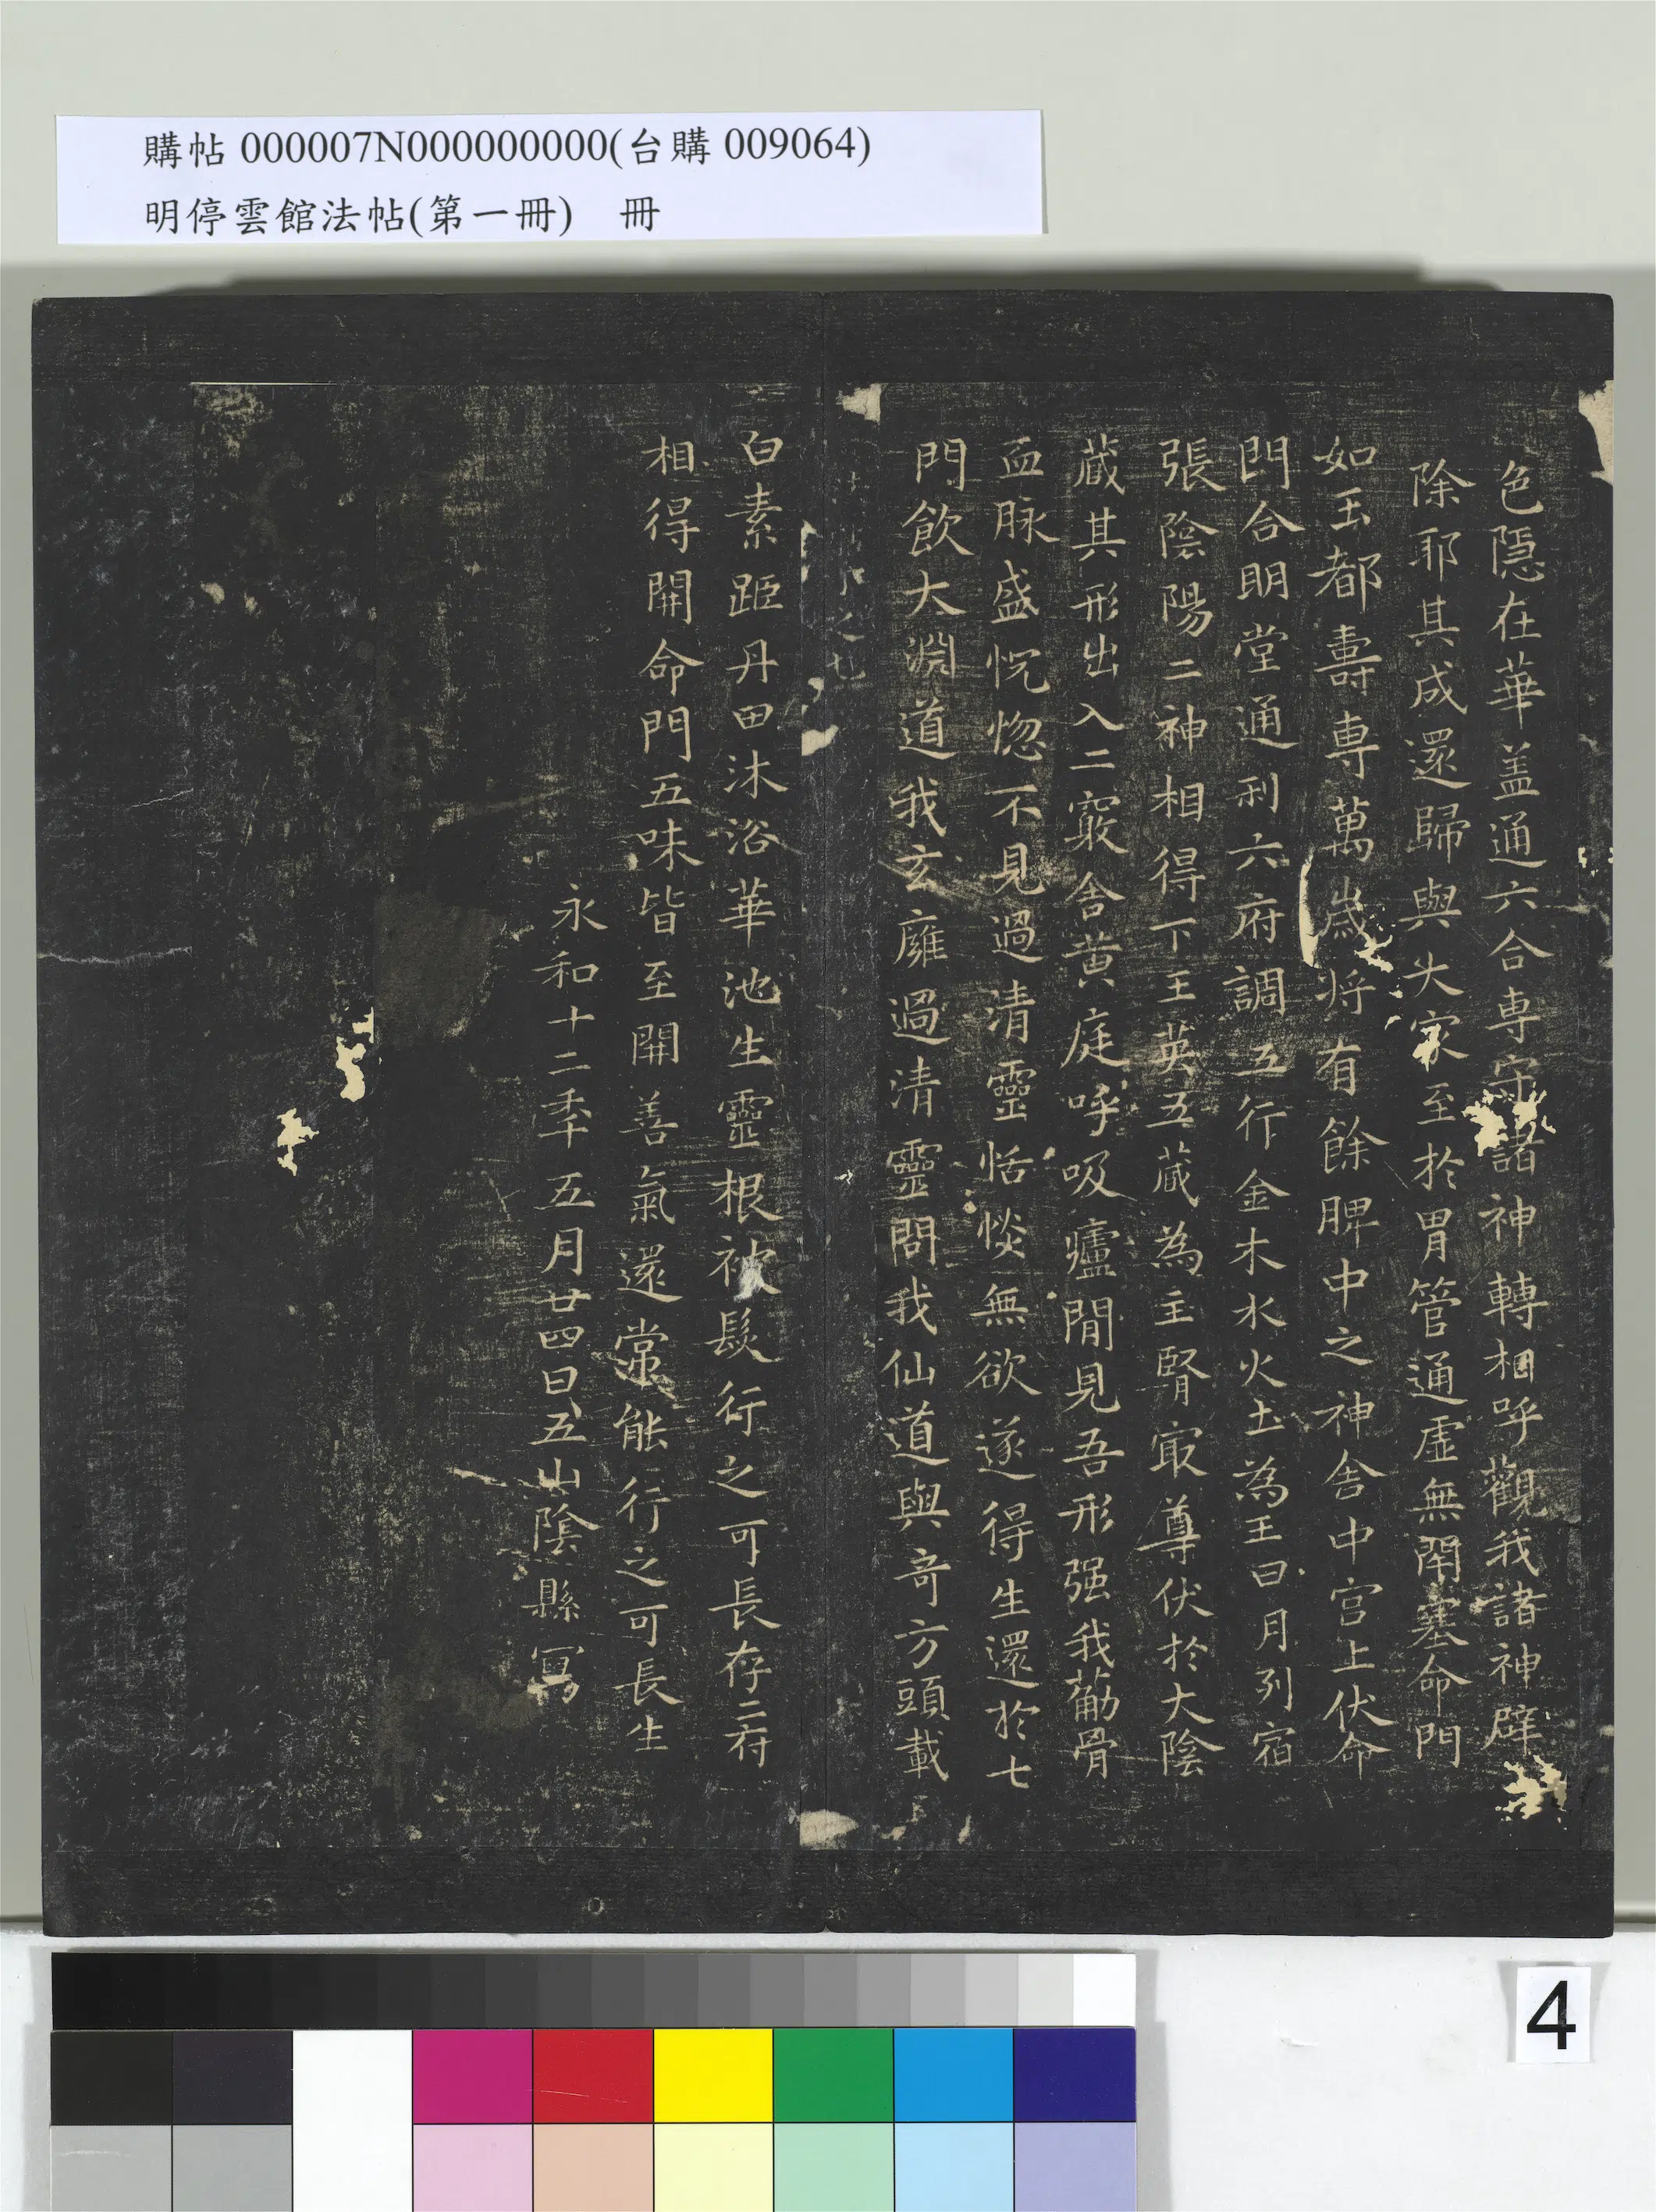 購帖 000007N000000000(台購 009064)
明停雲館法帖(第一冊) 冊
色隱在華盖通六合專守諸神轉相呼觀我諸神辟
除耶其成還歸與大家至於胃管通虛無閉塞命門
如玉都壽專萬歲将有餘脾中之神舍中宫上伏命
門合明堂通利六府調五行金木水火土為王日月列宿
張陰陽二神相得下王英五藏為主腎㝡尊伏於大陰
藏其形出入二竅舍黄庭呼吸廬間見吾形强我萮骨
血脉盛恍惚不見過清靈恬惔無欲遂得生還於七
門飲大淵道我玄廱過清靈問我仙道與奇方頭載
白素距丹田沐浴華池生靈根被髮行之可長存二府
相得開命門五味皆至開善氣還常能行之可長生
永和十二秊五月廿四日五山陰縣寫
4